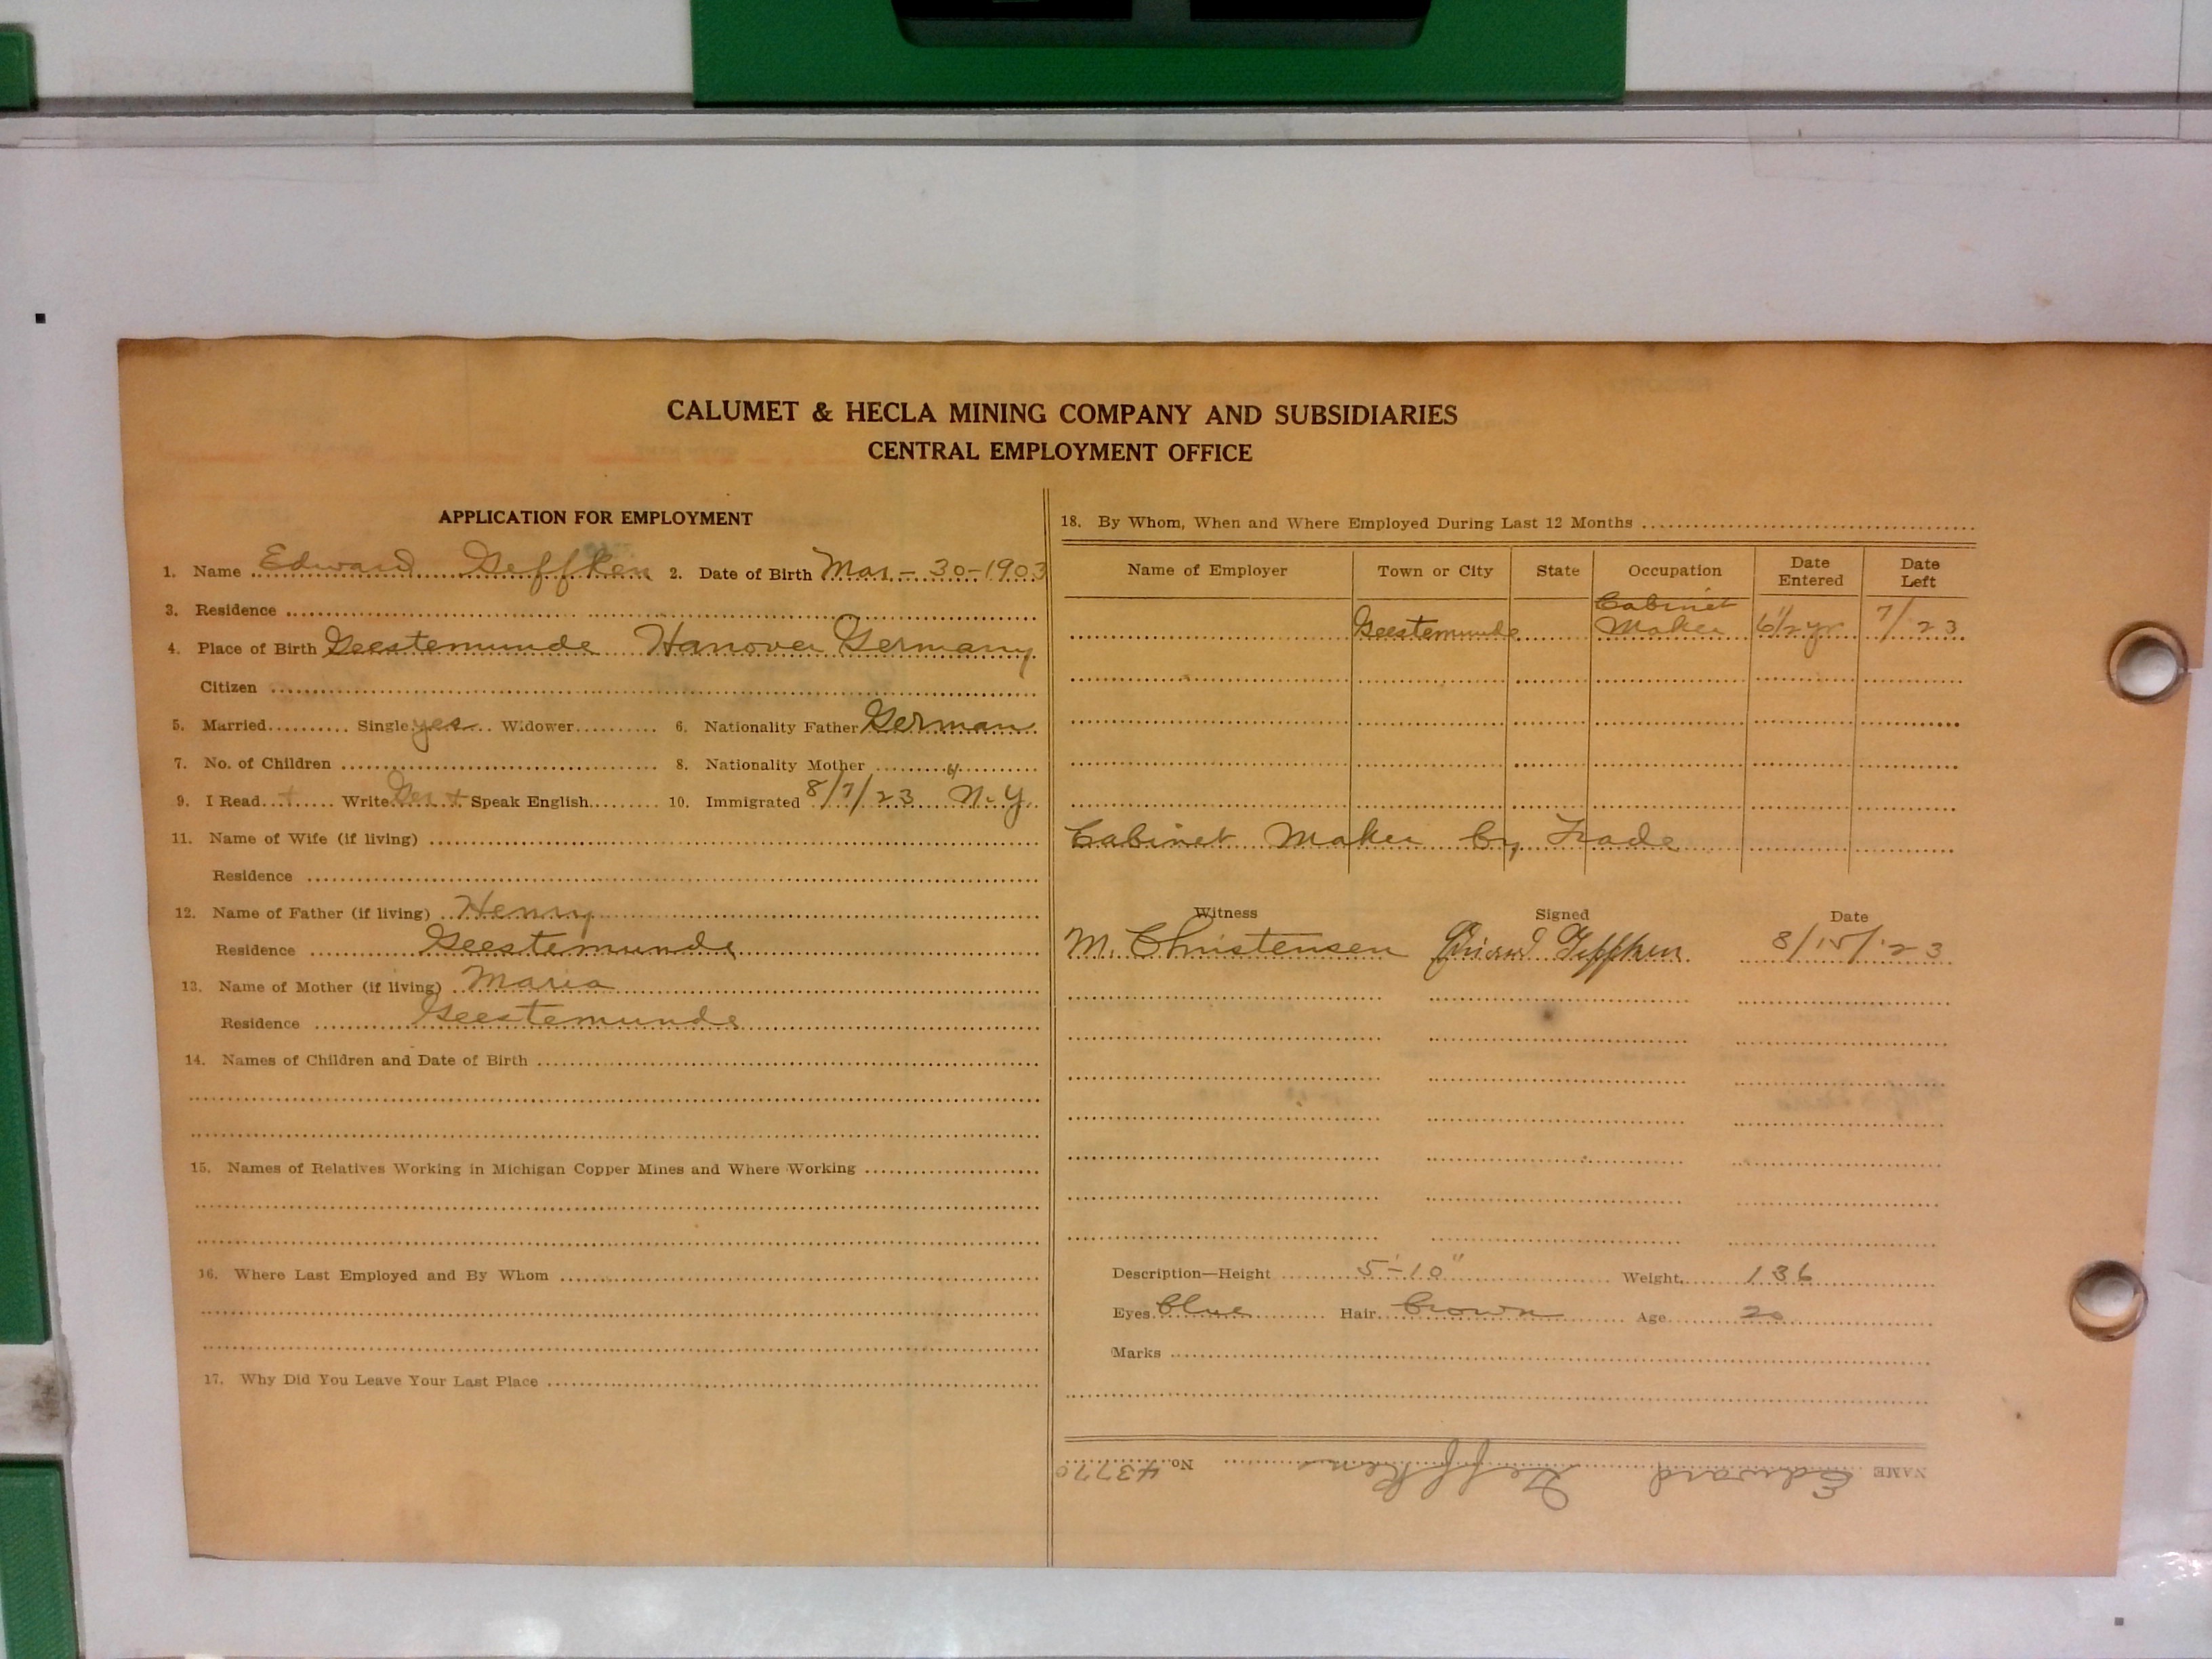 CALUMET & HECLA MINING COMPANY AND SUBSIDIARIES
CENTRAL EMPLOYMENT OFFICE
APPLICATION FOR EMPLOYMENT
1. Name Edward Geffken 2. Date of Birth Mar - 30 - 1903
3. Residence
4. Place of Birth Geestemunde Hanover Germany
Citizen
5. Married Single yes Widower 6. Nationality Father German
7. No. of Children 8. Nationality Mother "
9. I Read + Write Ger + Speak English 10. Immigrated 8/7/23 N.Y.
11. Name of Wife (if living)
Residence
12. Name of Father (if living) Henry
Residence Geestemunde
13. Name of Mother (if living) Maria
Residence Geestemunde
14. Names of Children and Date of Birth
15. Names of Relatives Working in Michigan Copper Mines and Where Working
16. Where Last Employed and By Whom
17. Why Did You Leave Your Last Place
18. By Whom, When and Where Employed During Last 12 Months
Name of Employer Town or City State Occupation Date Entered Date Left
Geestemunde Cabinet Maker 6 1/2 yr 7/23
Cabinet Maker by Trade
Witness Signed Date
M. Christensen Geffken 8/15/23
Description—Height 5'-10" Weight 136
Eyes blue Hair brown Age 20
Marks
NAME Edward Geffken No. 43770